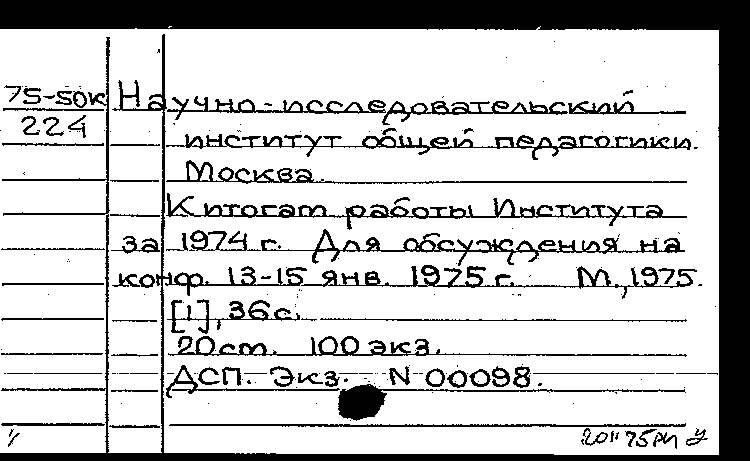 75-50к Научно-исследовательский
224 институт общей педагогики.
Москва.
К итогам работы Института
за 1974 г. Для обсуждения на
конф. 13-15 янв. 1975 г. М., 1975.
[1], 36 с.
20 cm. 100 экз.
ДСП. Экз. N 00098.